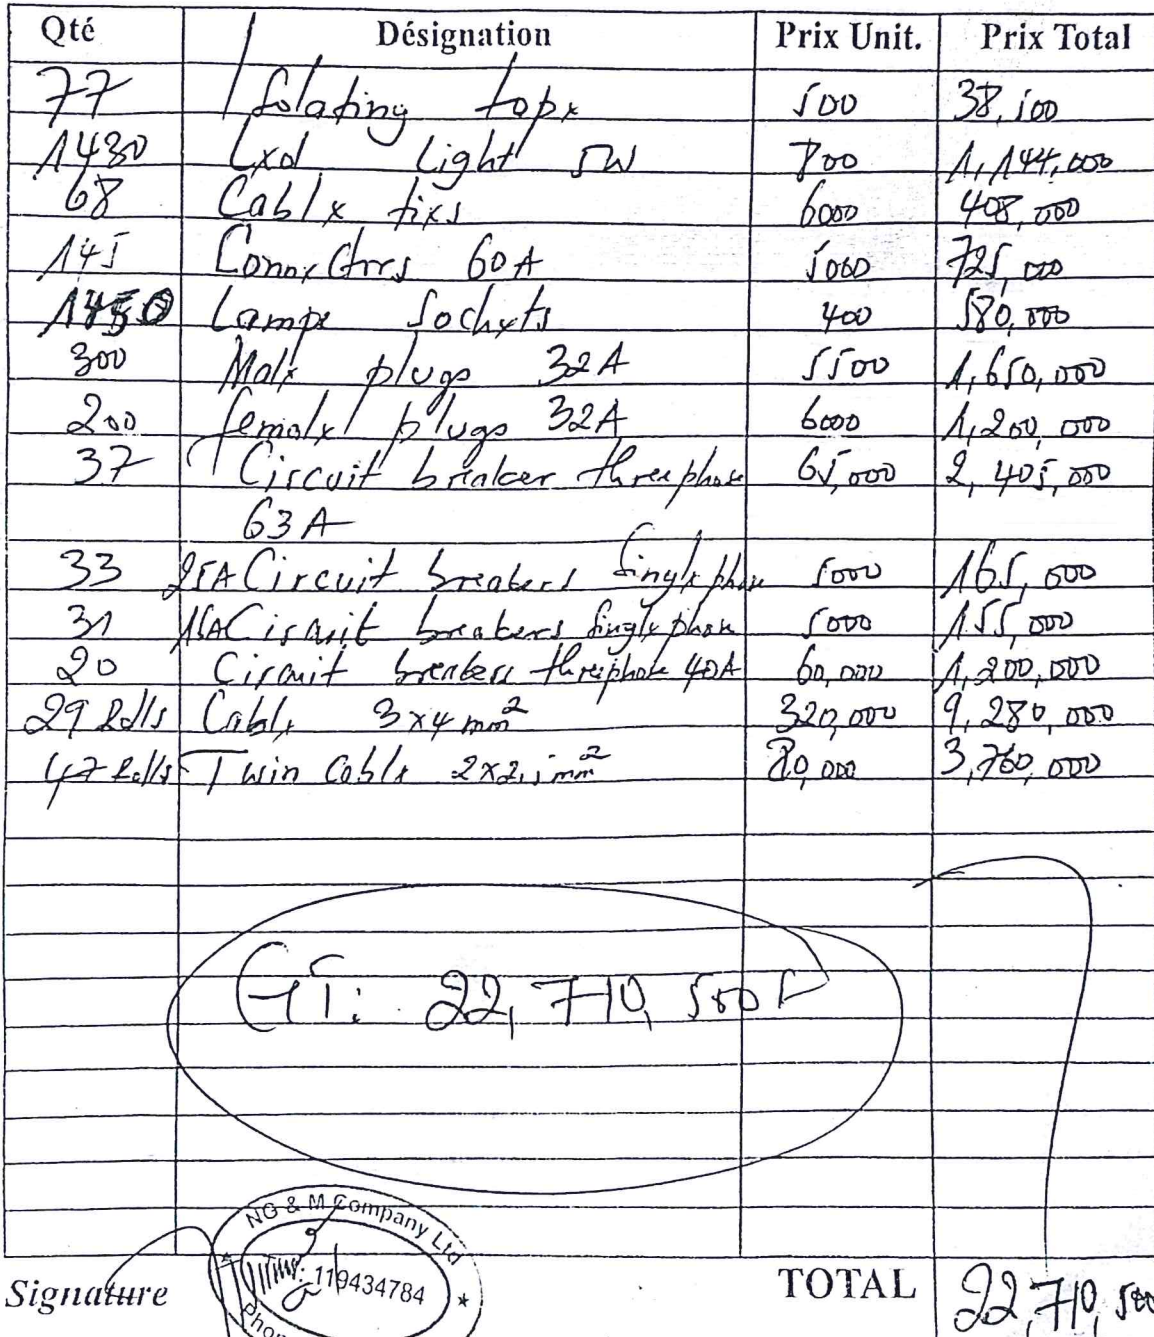 Qté Désignation Prix Unit. Prix Total
77 Isolating tape 500 38,500
1430 Led Light 5W 800 1,144,000
68 Cable ties 6000 408,000
145 Connectors 60A 5000 725,000
1450 Lampe Sockets 400 580,000
300 Male plugs 32A 5500 1,650,000
200 female plugs 32A 6000 1,200,000
37 Circuit breaker three phase 65,000 2,405,000
63A
33 25A Circuit breakers Single phase 5000 165,000
31 16A Circuit breakers Single phase 5000 155,000
20 Circuit breakers three phase 40A 60,000 1,200,000
29 Rolls Cable 3x4 mm² 320,000 9,280,000
47 Rolls Twin Cable 2x2,5mm² 80,000 3,760,000
GT: 22,710,500F
NG & M Company Ltd
119434784
Signature TOTAL 22,710,500